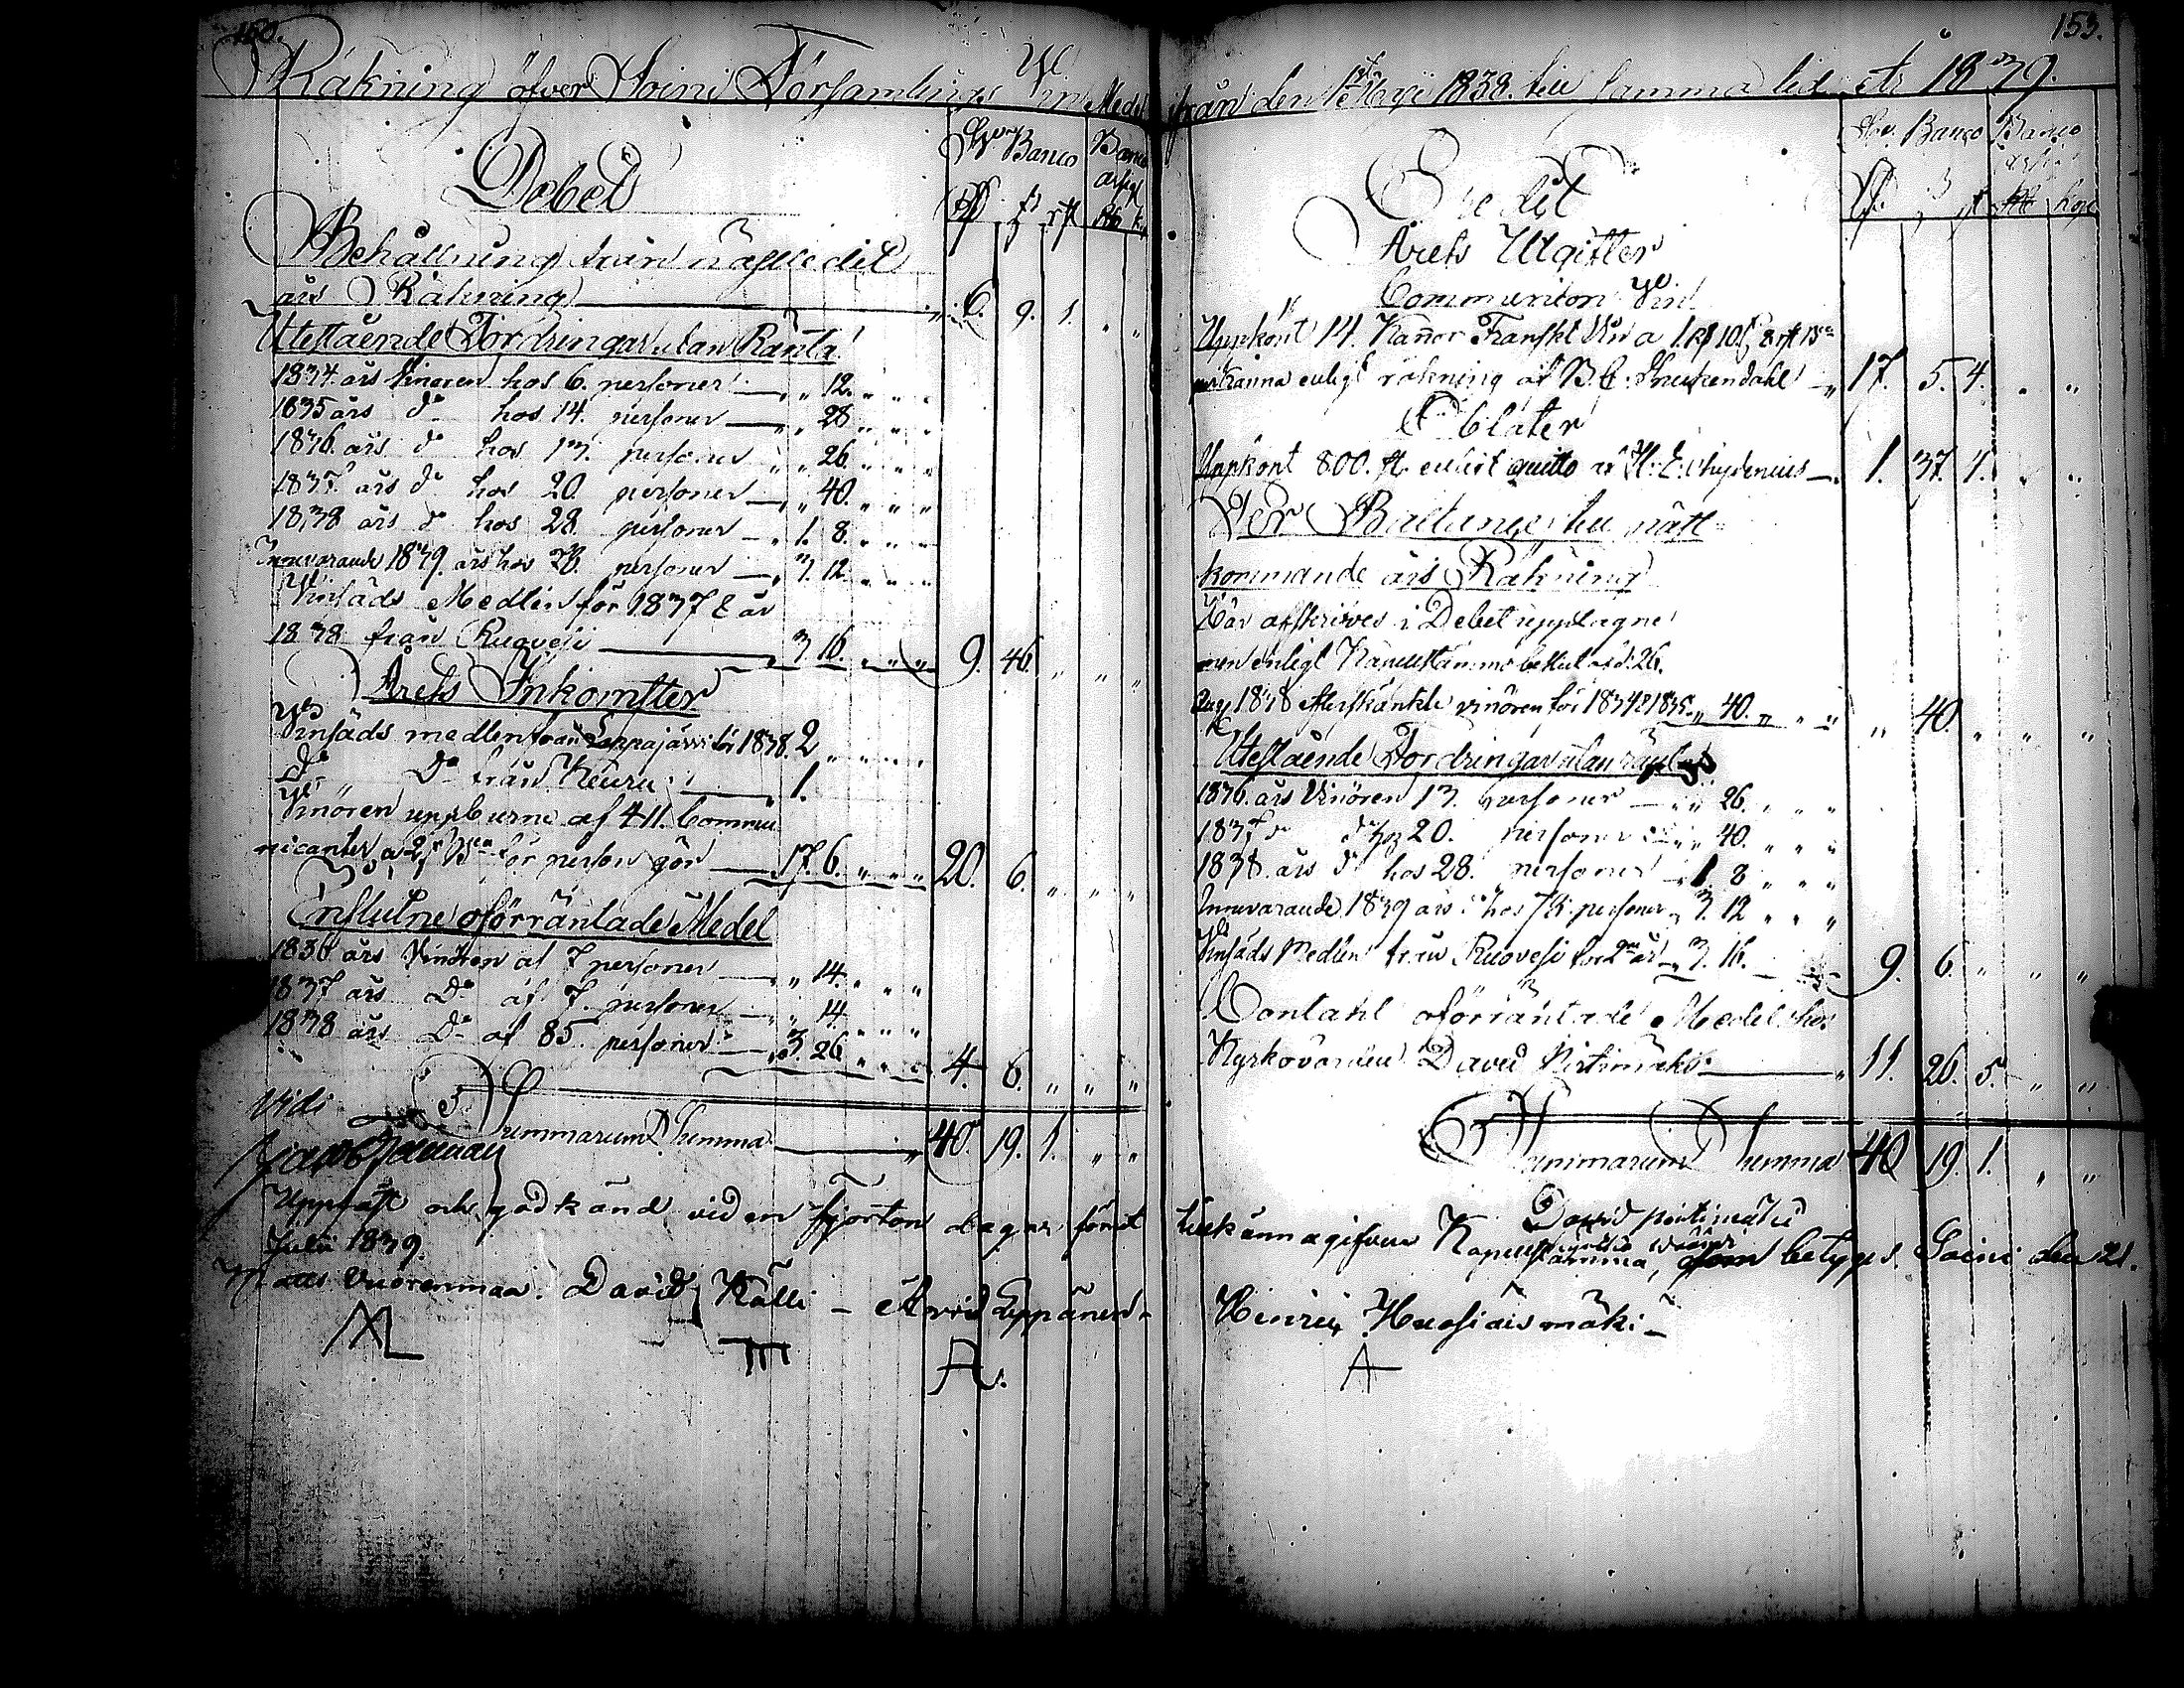 150.
Räkning öfver Soini Församlings Vin Medel
Sv. Banco Banco
Debet
Behållning från nästledit
års Räkning 6. 9. 1. " "
Utestående Fordringar utan Ränta
1834 års Vinören hos 6. personer " 12. " " "
1835 års d:o hos 14. personer " 28 " " "
1836. års d:o hos 13. personer " 26. " " "
1837 års d:o hos 20. personer " 40. " " "
1838 års d:o hos 28. personer 1. 8. " " "
Innevarande 1839. års hos personer 3. 12. " " "
Vinsäds Medlen för 1837 & år
1838 från Ruovesi 3. 16. " " " 9. 46. " " "
Årets Inkomster
Vinsäds medlen från Lappajärvi för 1838. 2 " " " "
D:o D:o från Keuru 1.
Vinören uppburne af 411. Commu
nicanter, a 2 för person gör 17. 6. " " " 20. 6. " " "
Influtne oförräntade Medel
1836 års Vinören af 7 personer " 14. " " "
1837 års D:o af 7. personer " 14. " " "
1838 års D:o af 85. personer 3. 26 " " " 4. 6. " " "
Vidi
Summarum Summa 40. 19. 1. " "
Uppläst och godkänd vid en fjorton dagar förut
Julii 1839.
Matts Vuorenmaa. David Källi - Arvid Leppänen -
153.
från den 1 Maji 1838. till samma tid år 1839.
Sv. Banco Banco
Credit
Årets Utgifter
Communion Vin
Uppköpt 14. Kannor Franskt Vin a 1. 10. 8
Kanna enligt räkning af B. C. 17. 5. 4. " "
Oblater
Uppköpt 800. st. enligt quitto af H: E: Chydenius 1. 37. 1. " "
Per Ballance till näst=
kommande års Räkning
Här afskrives i Debet upptagne
men enligt Kapellstämmobeslut af d: 26.
Aug 1838 efterskänkte vinören för 1834 & 1835. " 40. " " " " 40. " " "
Utestående Fordringar utan
1836. års Vinören 13. personer " 26. " " "
1837 d:o d:o hos 20. personer " 40. " " "
1838. års d:o hos 28. personer 1. 8 " " "
Innevarande 1839 års d:o hos personer 3. 12 " " "
Vinsäds Medlen från Ruovesi för 2:ne år 3. 16. 9. 6. " " "
Contant oförräntade Medel hos
Kyrkovärden David Pirtimäki 11. 26. 5. " "
Summarum Summa 40 19. 1. " "
David Pirtimäki
tillkännagifven Kapellstämma, som betyges. Soini den 21.
Henric Huosiaismäki -